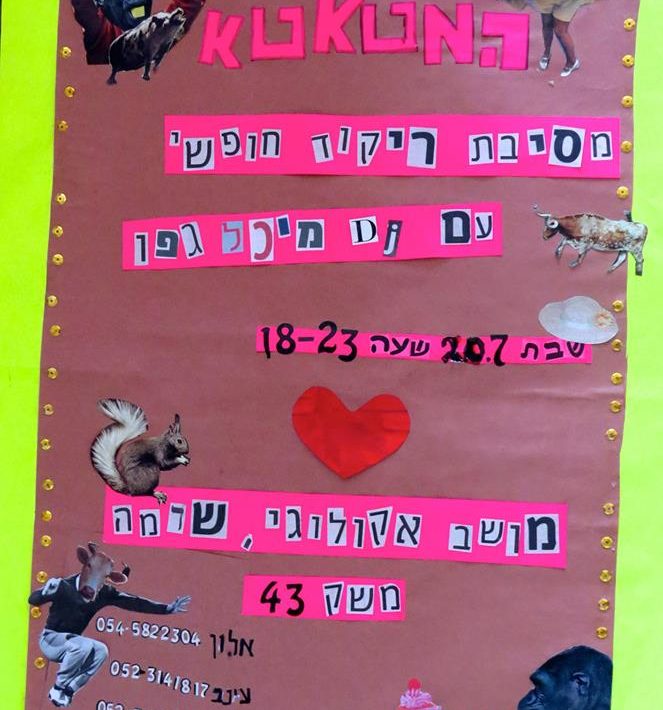 המטאטא
מסיבת ריקוד חופשי
עם Dj מיכל גפן
שבת 20.7 שעה 18-23
מושב אקולוגי, שדמה
משק 43
אלון 054-5822304
עינב 052-3141817